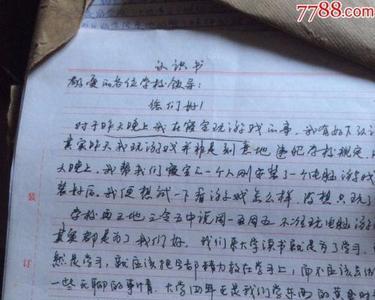 7788.com
认识书
敬爱的各位学校领导：
您们好！
对于昨天晚上我在寝室玩游戏的事，我有如下认
其实昨天我玩游戏并非是刻意地违犯学校规定，
天晚上，我帮我们寝室一个人刚安装了一个电脑游戏
装好后，我便想试一下看游戏怎么样，
学校再三地三令五申说周一至周五不准玩电脑游
其实都是为了我们好。我们来大学读书就是为了学习，
然是学习，就应该把全部精力放在学习上，而不应该去
一些无聊的事情。大学四年是我们学东西的黄金时
装
订